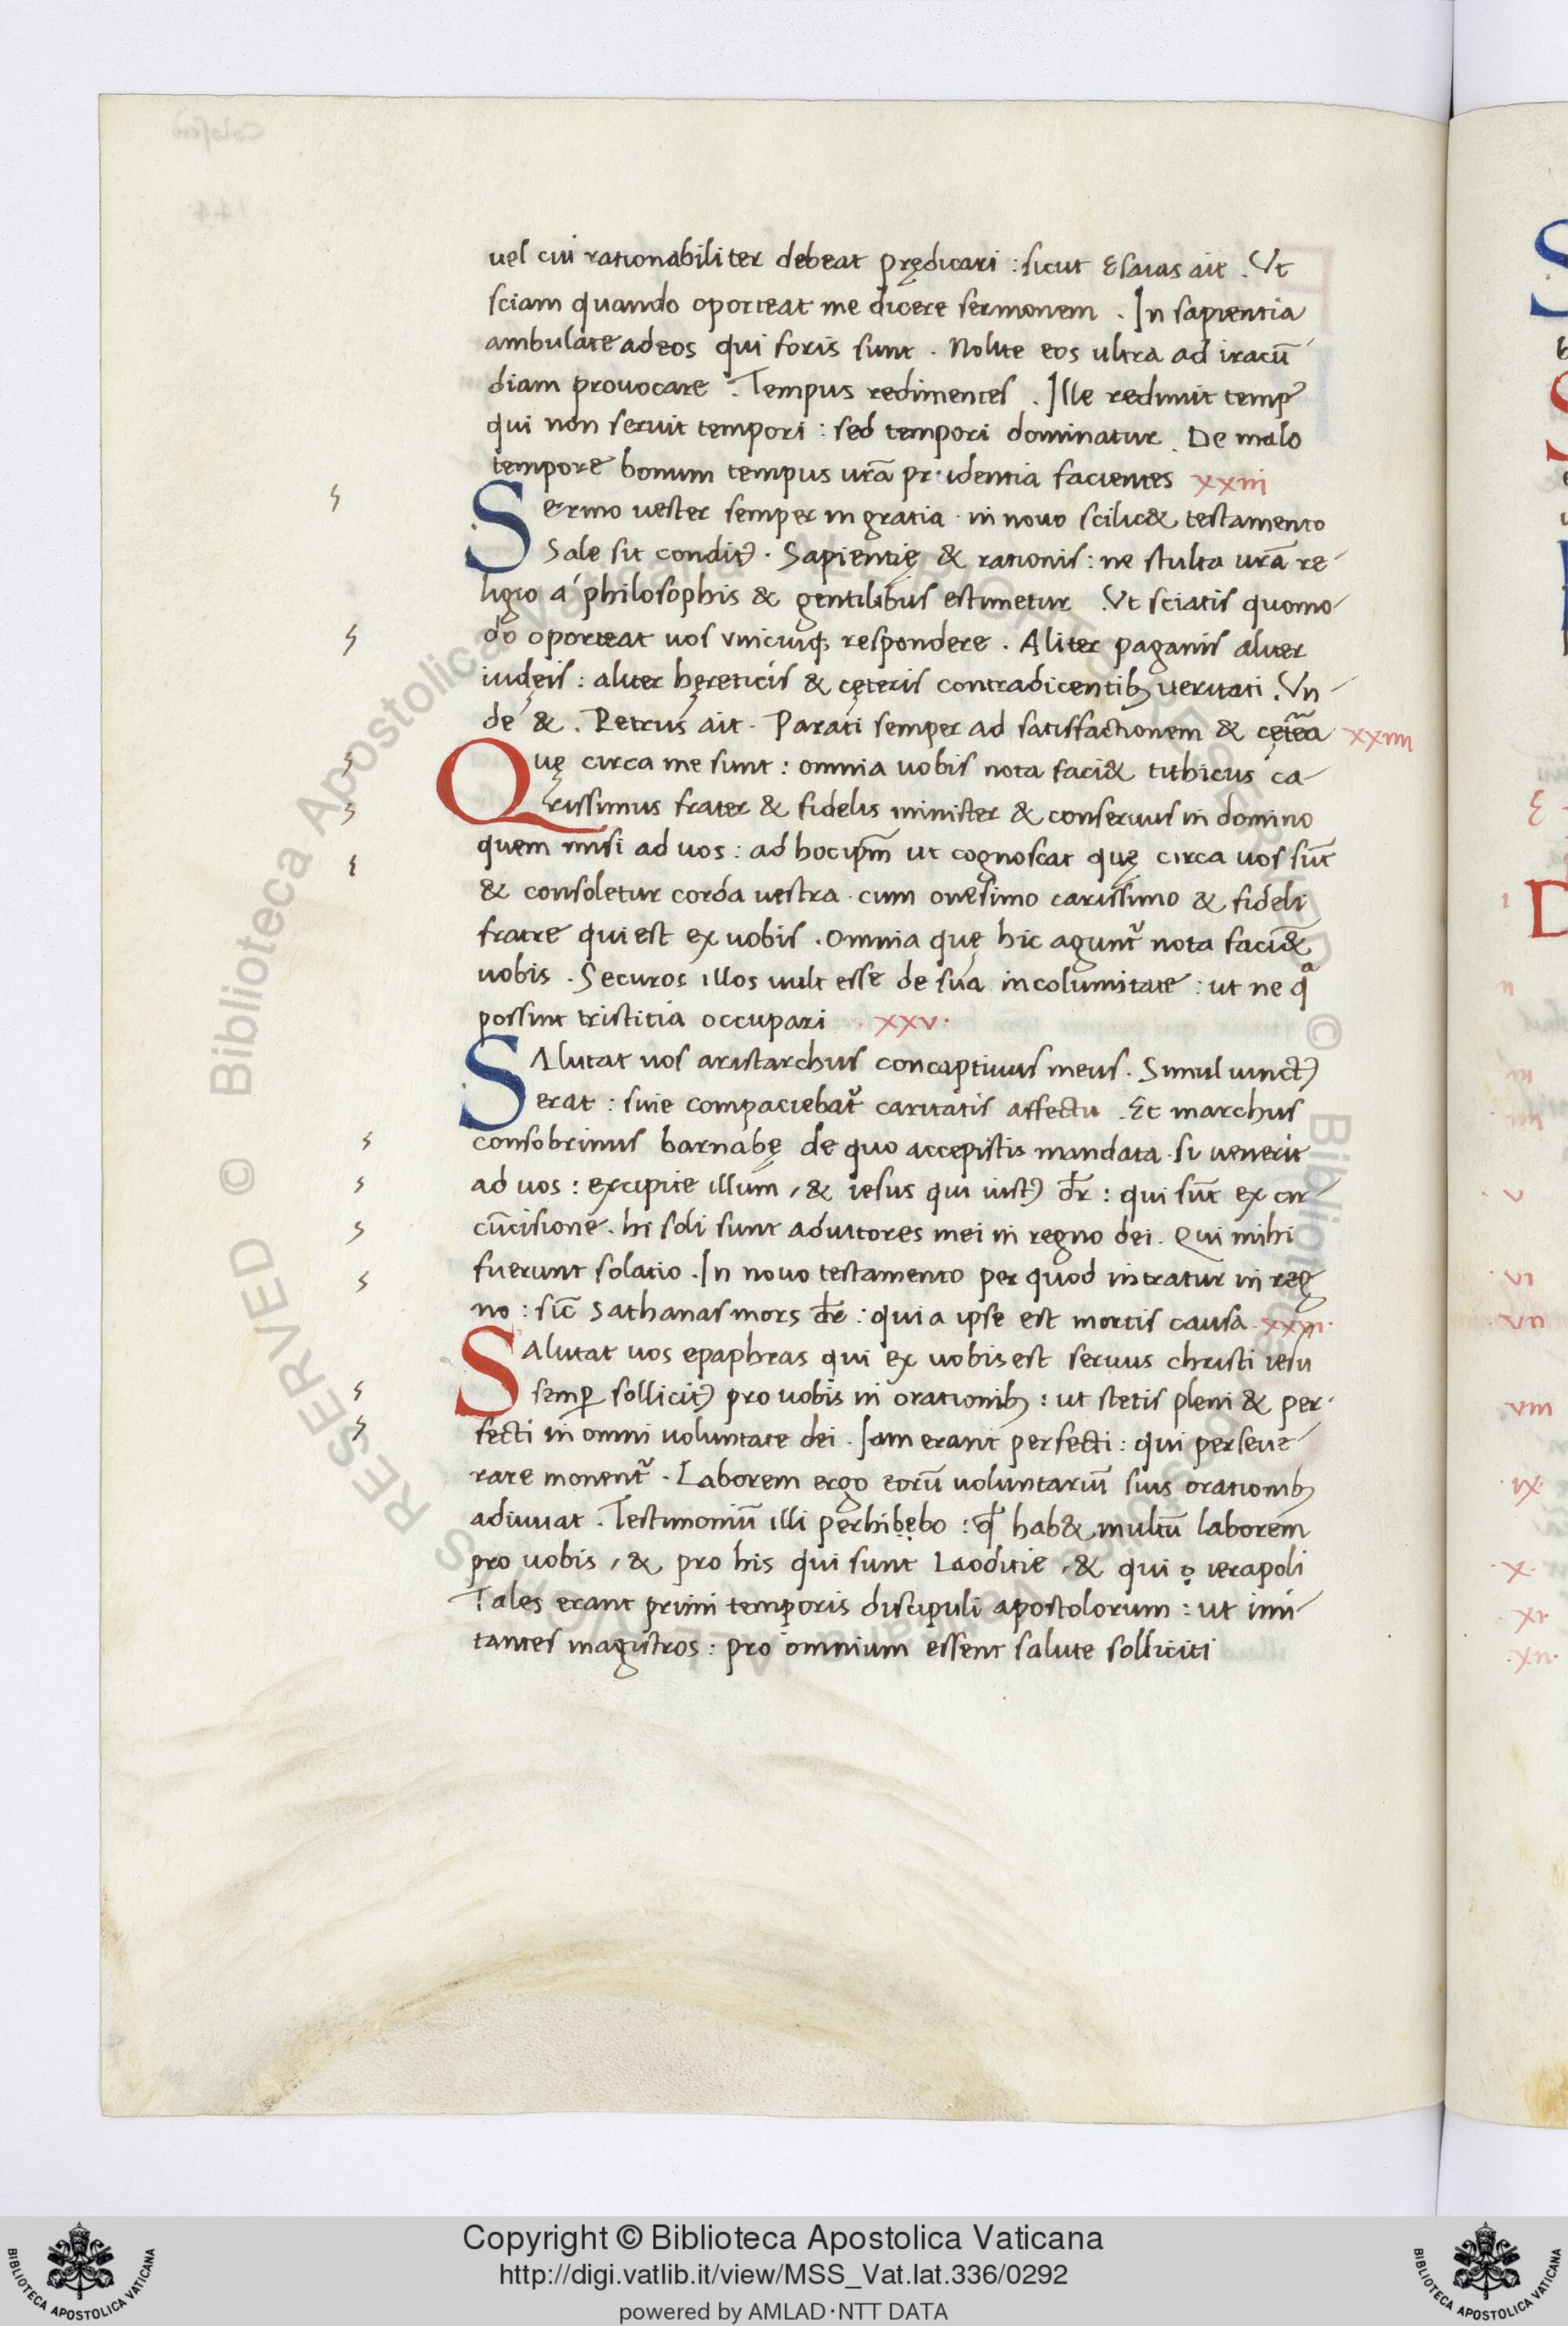 uel cui rationabiliter debeat prędicari : sicut Esaias ait . Vt
sciam quando oporteat me dicere sermonem . In sapientia
ambulate ad eos qui foris sunt . Nolite eos ultra ad iracū
diam provocare . Tempus redimentes . Ille redimit temp᾽
qui non seruit tempori : sed tempori dominatur . De malo
tempore bonum tempus urā pr·identia facientes xxiii
Sermo uester semper in gratia · in nouo scilic& testamento
Sale sit condit᾽ . Sapientię & rationis : ne stulta urā re-
ligio a philosophis & gentilibus estimetur . Vt sciatis quomo-
do oporteat uos vnicuiq; respondere . Aliter paganis aliter
iudęis : aliter hęreticis & cęteris contradicentib; ueritati . Vn-
de & . Petrus ait . Parati semper ad satisfactionem & cętēa xxiiii
Quę circa me sunt : omnia uobis nota faci& tithicus ca-
rissimus frater & fidelis minister & conseruus in domino
quem misi ad uos : ad hoc ipm̄ ut cognoscat quę circa uos sūt
& consoletur corda uestra · cum onesimo carissimo & fideli
fratre qui est ex uobis . Omnia quę hic agunt᾽ nota faci&̄
uobis . Securos illos uult esse de sua incolumitate : ut ne qᵃ
possint tristitia occupari . xxv ·
SAlutat uos aristarchus concaptiuus meus . Simul uinct᾽
erat : siue compaciebat᾽ caritatis affectu . Et marchus
consobrinus barnabę de quo accepistis mandata · si uenerit
ad uos : excipite illum , & iesus qui iust᾽ dr̄ : qui sūt ex cir-
cūcisione . hi soli sunt adiutores mei in regno dei . Qui mihi
fuerunt solatio . In nouo testamento per quod intratur in reg
no : sic̄ sathanas mors dr̄ : quia ipse est mortis causa . xxvi ·
SAlutat uos epaphras qui ex uobis est seruus christi iesu
semꝑ sollicit᾽ pro uobis in orationib; : ut stetis pleni & per-
fecti in omni voluntate dei . Iam erant perfecti : qui perseue-
rare monent᾽ . Laborem ergo eorū uoluntariū suis orationib;
adiuuat . Testimoniū illi perhibẹbo : qđ hab& multū laborem
pro uobis , & pro his qui sunt Laoditie , & qui ọ ierapoli
Tales erant primi temporis discipuli apostolorum : ut imi-
tantes magistros : pro omnium essent salute solliciti
Copyright © Biblioteca Apostolica Vaticana
http://digi.vatlib.it/view/MSS_Vat.lat.336/0292
powered by AMLAD·NTT DATA
BIBLIOTECA APOSTOLICA VATICANA
BIBLIOTECA APOSTOLICA VATICANA